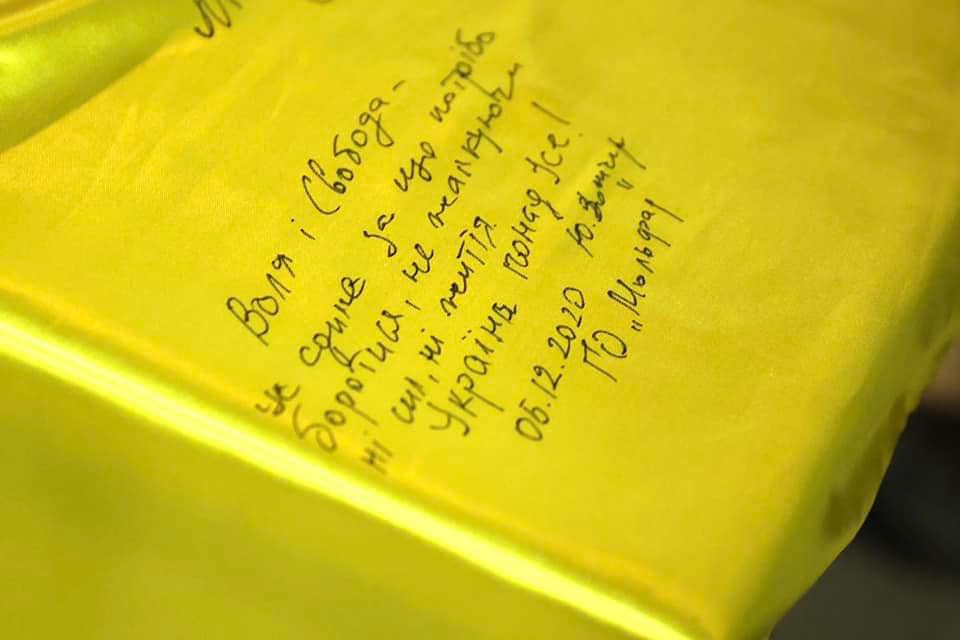 Воля і Свобода -
це єдине за що потрібно
боротися, не жаліючи
ні сил, ні життя
Україна понад Усе!
05.12.2020 Ю.
ГО „Мольфар"